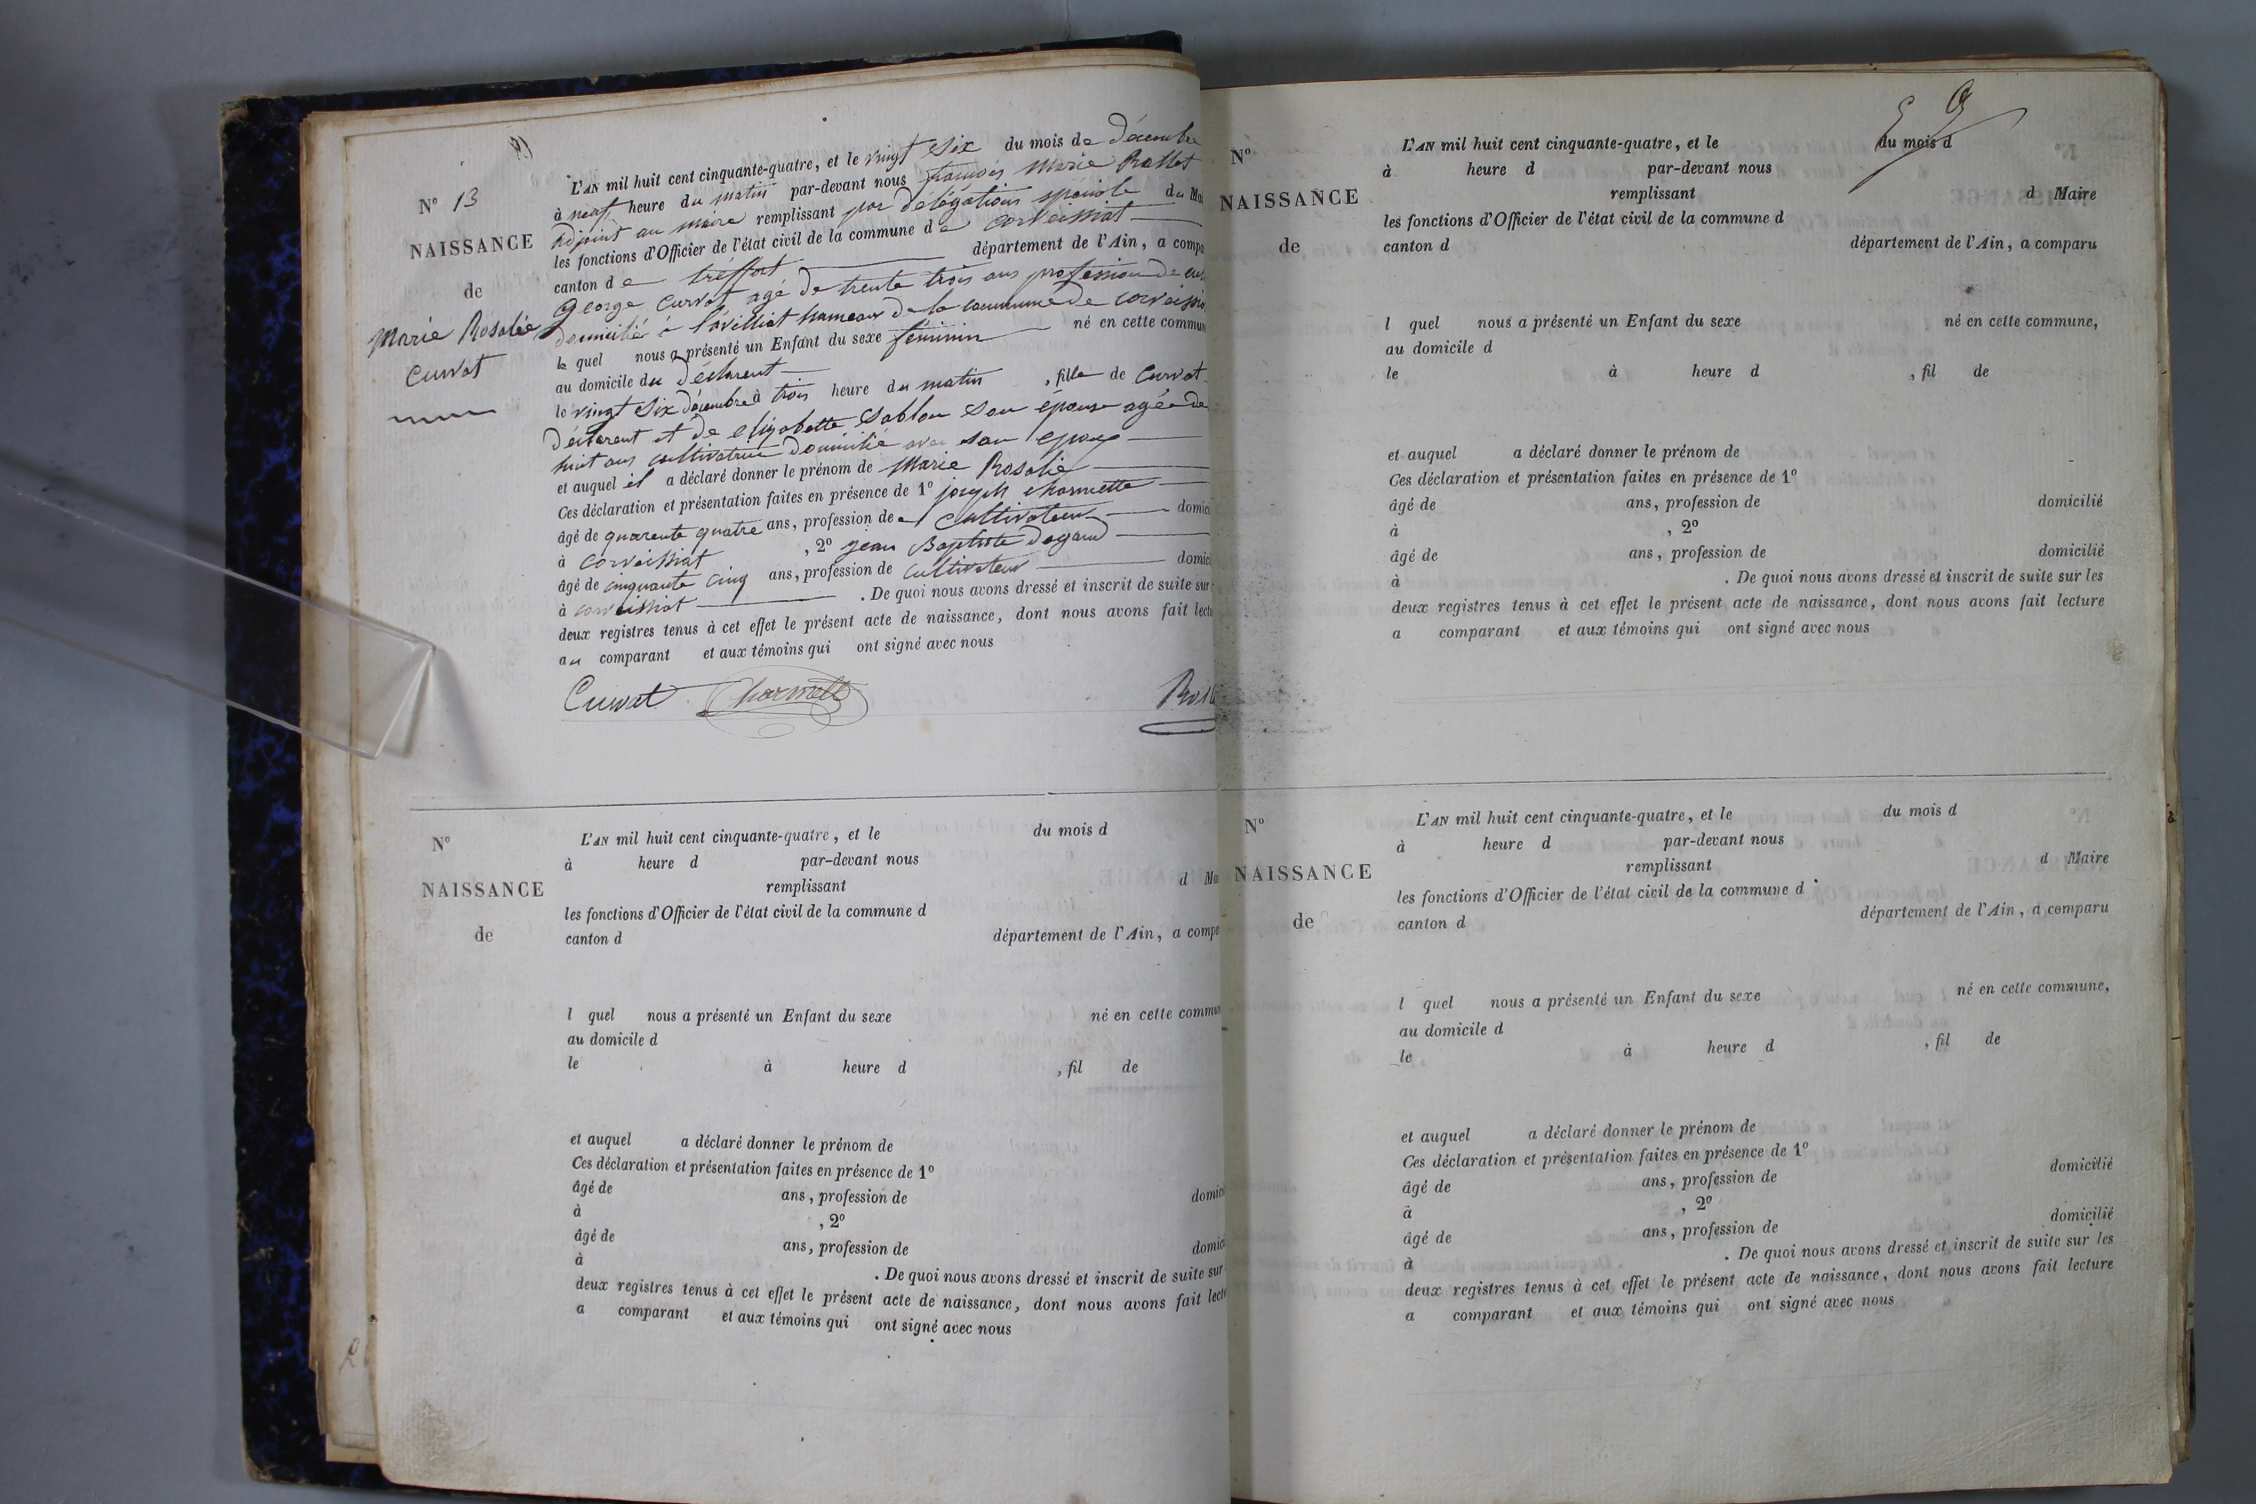 N° 13
NAISSANCE
de
Marie Rosalie
Curvat
L'AN mil huit cent cinquante-quatre, et le vingt six du mois de décembre
à neuf heure du matin par-devant nous françois Marie
adjoint au maire remplissant par délégation spéciale du Mai
les fonctions d'Officier de l'état civil de la commune de corveissiat
canton de treffort département de l'Ain, a compa
George Curvat agé de trente trois ans profession de cul
domicilié à hameau de la commune de corveissia
le quel nous a présenté un Enfant du sexe féminin né en cette commun
au domicile du déclarent
le vingt six décembre à trois heure du matin , fille de Curvat
déclarent et de elizabette son épouse agée de
huit ans cultivatrice domicilié avec son epoux
et auquel il a déclaré donner le prénom de Marie Rosalie
Ces déclaration et présentation faites en présence de 1° joseph charnette
âgé de quarente quatre ans, profession de cultivateur domici
à corveissiat , 2° jean Baptiste
âgé de cinquante cinq ans, profession de cultivateur domici
à corveissiat . De quoi nous avons dressé et inscrit de suite sur
deux registres tenus à cet effet le présent acte de naissance, dont nous avons fait lectu
au comparant et aux témoins qui ont signé avec nous
Curvat Charnette
N°
NAISSANCE
de
L'AN mil huit cent cinquante-quatre, et le du mois d
à heure d par-devant nous
remplissant d Ma
les fonctions d'Officier de l'état civil de la commune d
canton d département de l'Ain, a compa
l quel nous a présenté un Enfant du sexe né en cette commun
au domicile d
le à heure d , fil de
et auquel a déclaré donner le prénom de
Ces déclaration et présentation faites en présence de 1°
âgé de ans, profession de domici
à , 2°
âgé de ans, profession de domici
à . De quoi nous avons dressé et inscrit de suite sur
deux registres tenus à cet effet le présent acte de naissance, dont nous avons fait lectu
a comparant et aux témoins qui ont signé avec nous
N°
NAISSANCE
de
L'AN mil huit cent cinquante-quatre, et le du mois d
à heure d par-devant nous
remplissant d Maire
les fonctions d'Officier de l'état civil de la commune d
canton d département de l'Ain, a comparu
l quel nous a présenté un Enfant du sexe né en cette commune,
au domicile d
le à heure d , fil de
et auquel a déclaré donner le prénom de
Ces déclaration et présentation faites en présence de 1°
âgé de ans, profession de domicilié
à , 2°
âgé de ans, profession de domicilié
à . De quoi nous avons dressé et inscrit de suite sur les
deux registres tenus à cet effet le présent acte de naissance, dont nous avons fait lecture
a comparant et aux témoins qui ont signé avec nous
N°
NAISSANCE
de
L'AN mil huit cent cinquante-quatre, et le du mois d
à heure d par-devant nous
remplissant d Maire
les fonctions d'Officier de l'état civil de la commune d
canton d département de l'Ain, a comparu
l quel nous a présenté un Enfant du sexe né en cette commune,
au domicile d
le à heure d , fil de
et auquel a déclaré donner le prénom de
Ces déclaration et présentation faites en présence de 1°
âgé de ans, profession de domicilié
à , 2°
âgé de ans, profession de domicilié
à . De quoi nous avons dressé et inscrit de suite sur les
deux registres tenus à cet effet le présent acte de naissance, dont nous avons fait lecture
a comparant et aux témoins qui ont signé avec nous